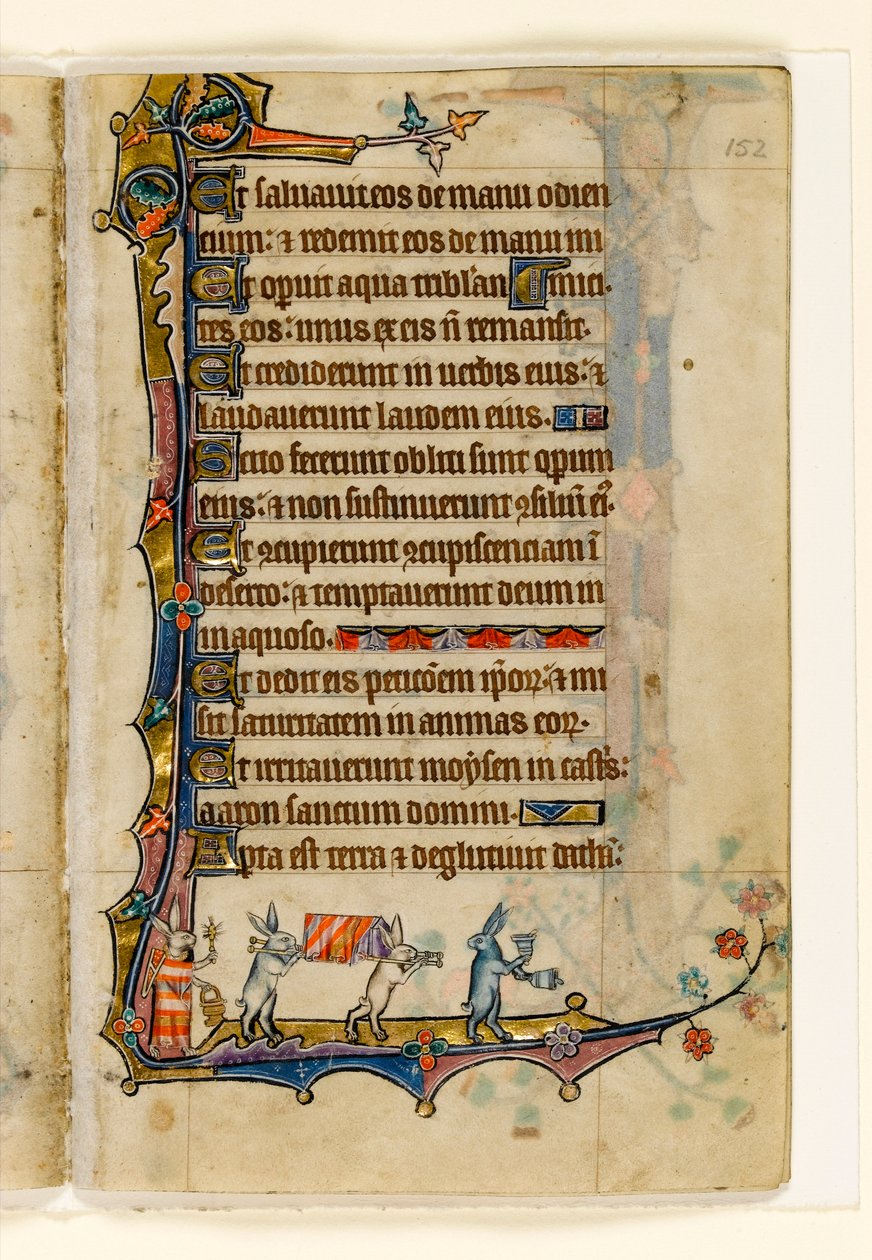 152
Et saluauit eos de manu odien
cium: ⁊ redemit eos de manu ini
Et op̲uit aqua tribl'an mici.
tes eos: unus ex eis n̄ remansit.
Et crediderunt in uerbis eius: ⁊
laudauerunt laudem eius.
Scito fecerunt obliti sunt op̲um
eius: ⁊ non sustinuerunt ꝯsiliū eiꝰ.
Et ꝯcupierunt ꝯcupiscenciam ī
deserto: ⁊ temptauerunt deum in
inaquoso.
Et dedit eis peticōem ip̄oꝝ: ⁊ mi
sit saturitatem in animas eoꝝ.
Et irritauerunt moẏsen in castˢ:
aaron sanctum domini.
Apta est terra ⁊ deglutiuit dathā: